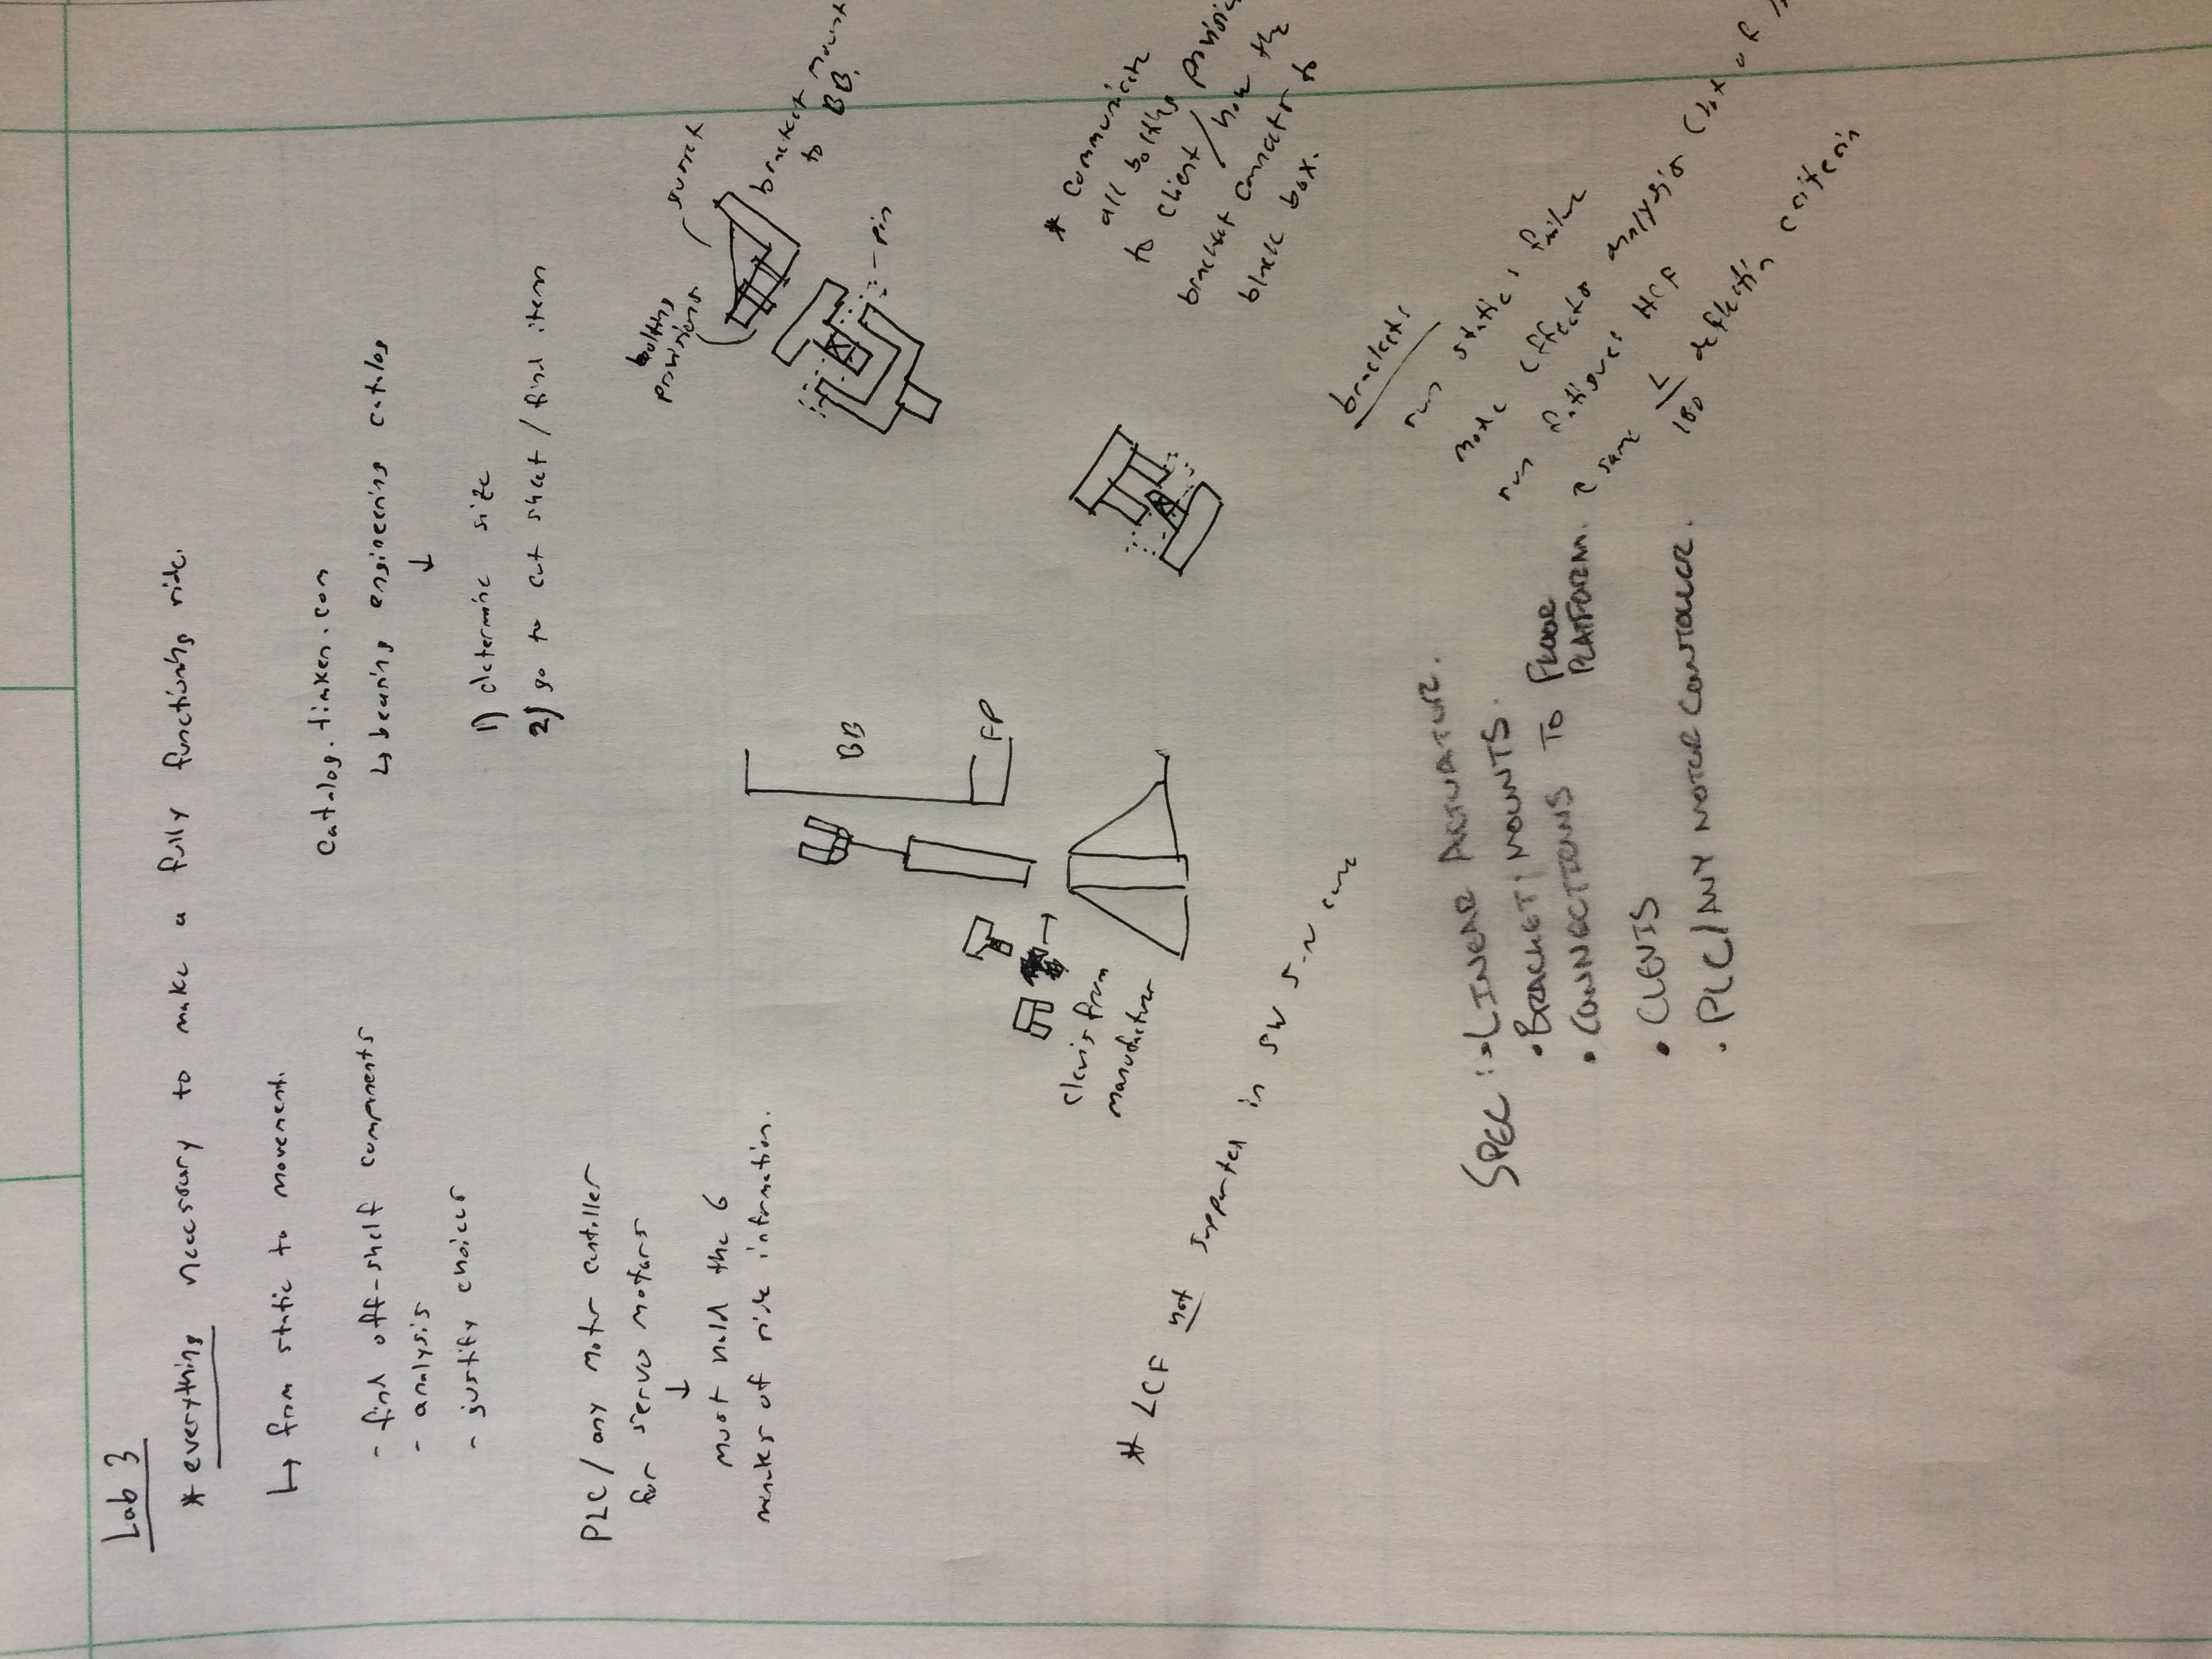 Lab 3
* everything necessary to make a fully functioning ride.
↳ from static to movement.
- find off-shelf components
- analysis
- justify choices
catalog.timken.com
↳ bearing engineering catalog
↓
1) determine size
2) go to cut sheet / find item
PLC / any motor contoller
for servo motors
↓
must hold the 6
minutes of ride information.
bolting
provisions
gusset
bracket mount
to BB.
- pin
BB
FP
clevis from
manufacturer
* LCF not supported in SW S-N curve
* communicate
all bolting
to client / how the
bracket connects to
black box.
brackets
run static: failure
mode effects analysis
run fatigue: HCF
same L/180 deflection criteria
SPEC: • LINEAR ACTUATOR.
• BRACKET; MOUNTS.
• CONNECTIONS TO FLOOR
PLATFORM.
• CLEVIS
• PLC/ANY MOTOR CONTOLLER.